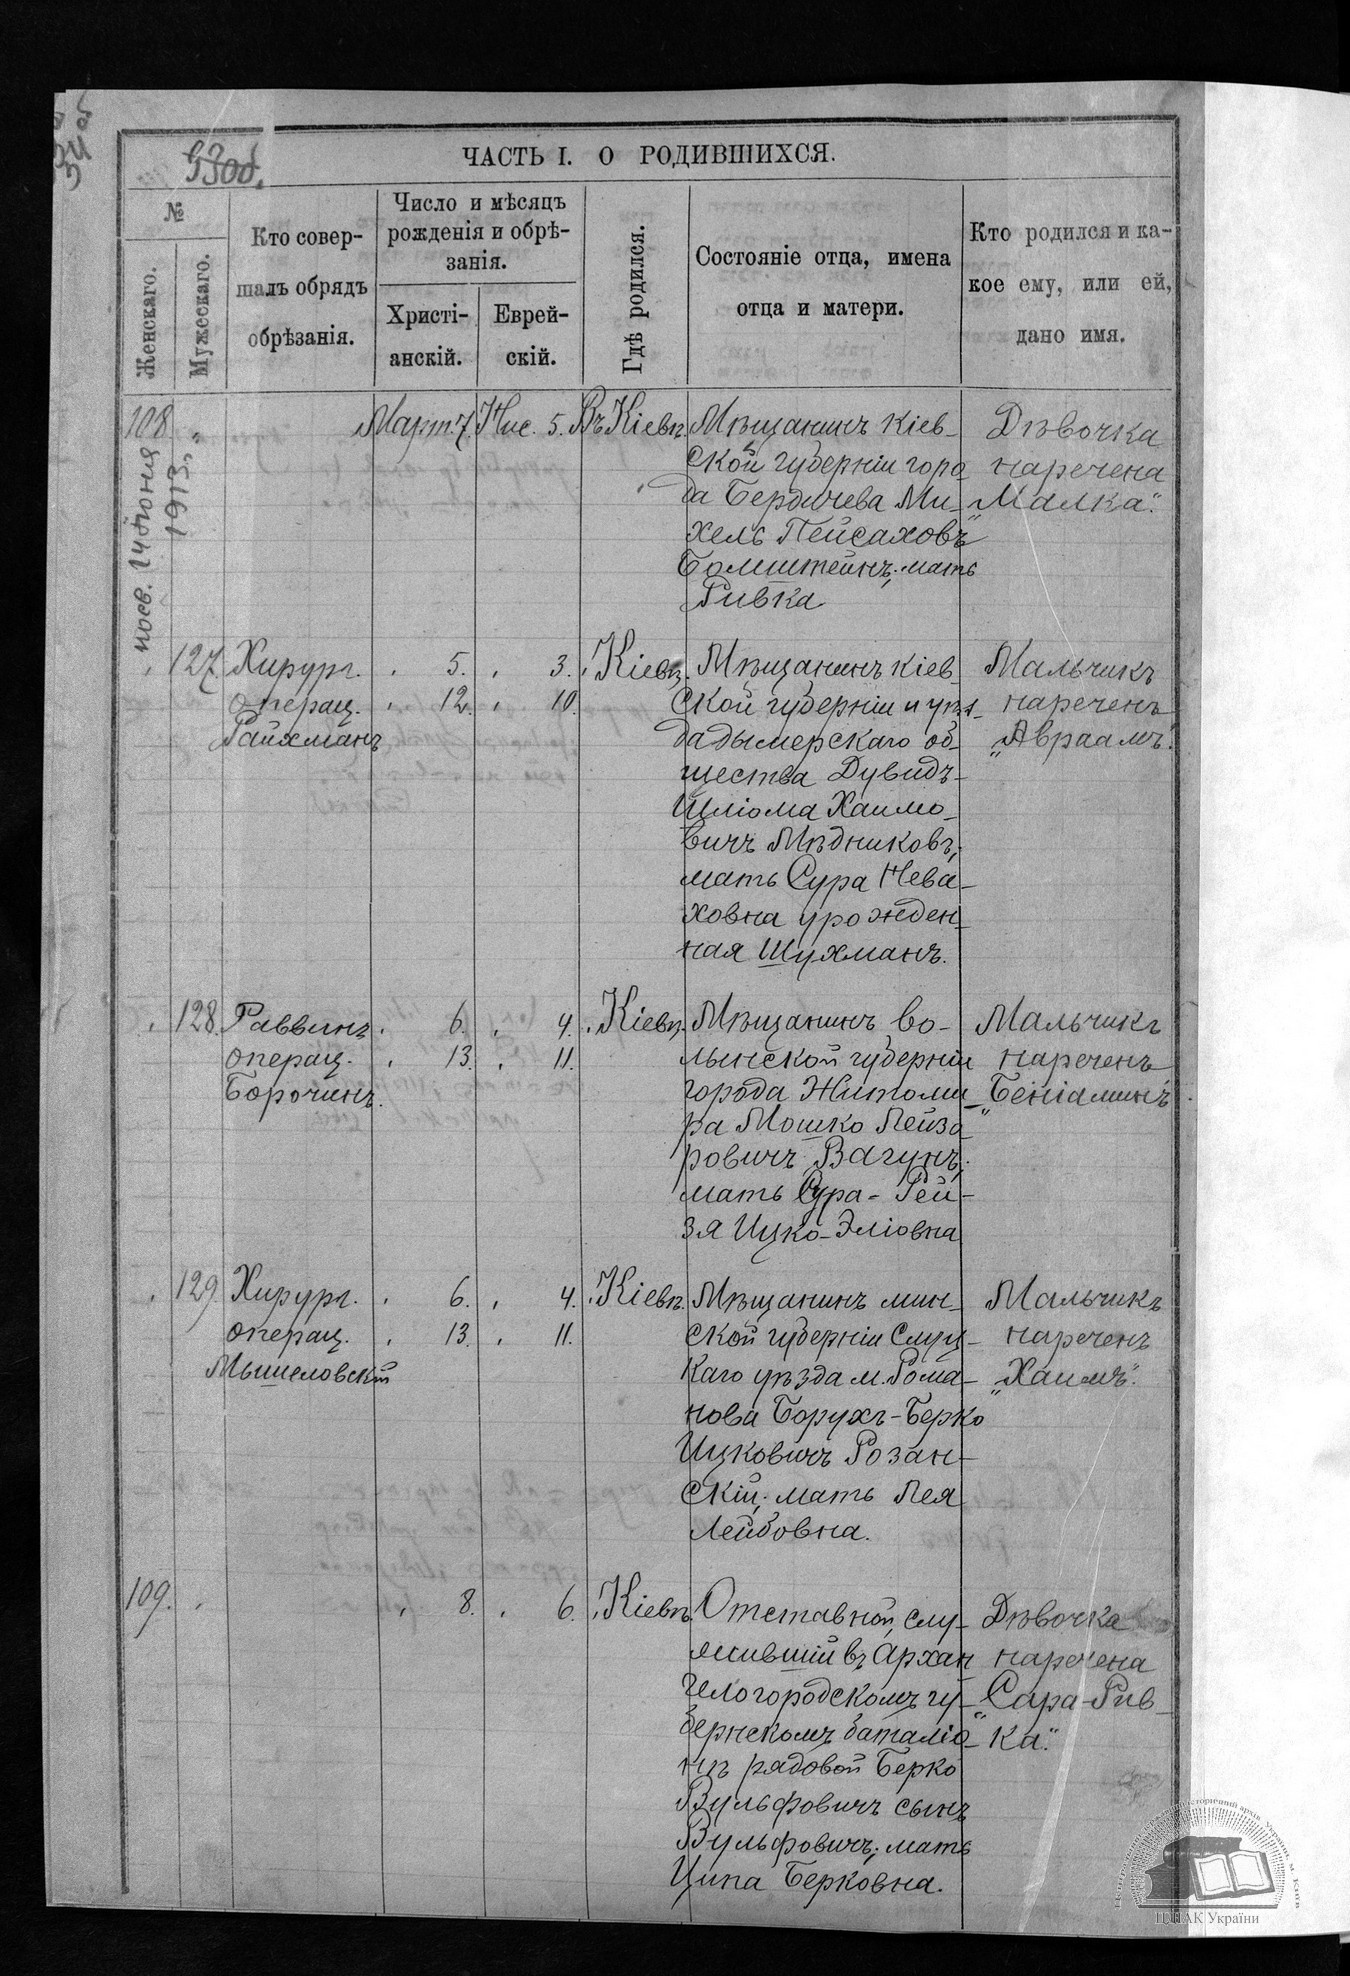 ЧАСТЬ I. О РОДИВШИХСЯ.
№
Женскаго.
Мужескаго.
Кто совер-
шалъ обрядъ
обрѣзанія.
Число и мѣсяцъ
рожденія и обрѣ-
занія.
Христі-
анскій.
Еврей-
скій.
Гдѣ родился.
Состояніе отца, имена
отца и матери.
Кто родился и ка-
кое ему, или ей,
дано имя.
108. „ Март. 7. Нис. 5. Въ Кіевѣ.
Мѣщанинъ Кіев-
ской губерніи горо-
да Бердичева Ми-
хель Пейсаховъ
Бомштейнъ; мать
Ривка
Дѣвочка
наречена
„Малка".
14 Іюня
1913
127. Хирург.
операц.
Райхманъ
5. 3.
12. 10.
Кіевѣ.
Мѣщанинъ Кіев-
ской губерніи и уѣз-
да дымерскаго об-
щества Дувидъ-
Шліома Хаимо-
вичъ Мѣдниковъ;
мать Сура Нева-
ховна урожден-
ная Шухманъ.
Мальчикъ
нареченъ
„Авраамъ".
128. Раввинъ
операц.
Борочинъ.
6. 4.
13. 11.
Кіевѣ.
Мѣщанинъ Во-
лынской губерніи
города Житоми-
ра Мошко Лейзо-
ровичъ Вагунъ;
мать Сура-Рей-
зя Ицко-Эліовна
Мальчикъ
нареченъ
„Беніаминъ".
129. Хирург.
операц.
Мышеловскій
6. 4.
13. 11.
Кіевѣ.
Мѣщанинъ мин-
ской губерніи Слуц-
каго уѣзда м. Рома-
нова Борухъ-Берко
Ицковичъ Розан-
скій; мать Лея
Лейбовна.
Мальчикъ
нареченъ
„Хаимъ".
109. 8. 6. Кіевѣ.
Отставной, слу-
жившій въ Архан
гелогородскомъ гу-
бернскомъ баталіо-
нѣ рядовой Берко
Вульфовичъ сынъ
Вульфовичъ; мать
Ципа Берковна.
Дѣвочка
наречена
„Сара-Рив-
ка".
ЦДІАК України